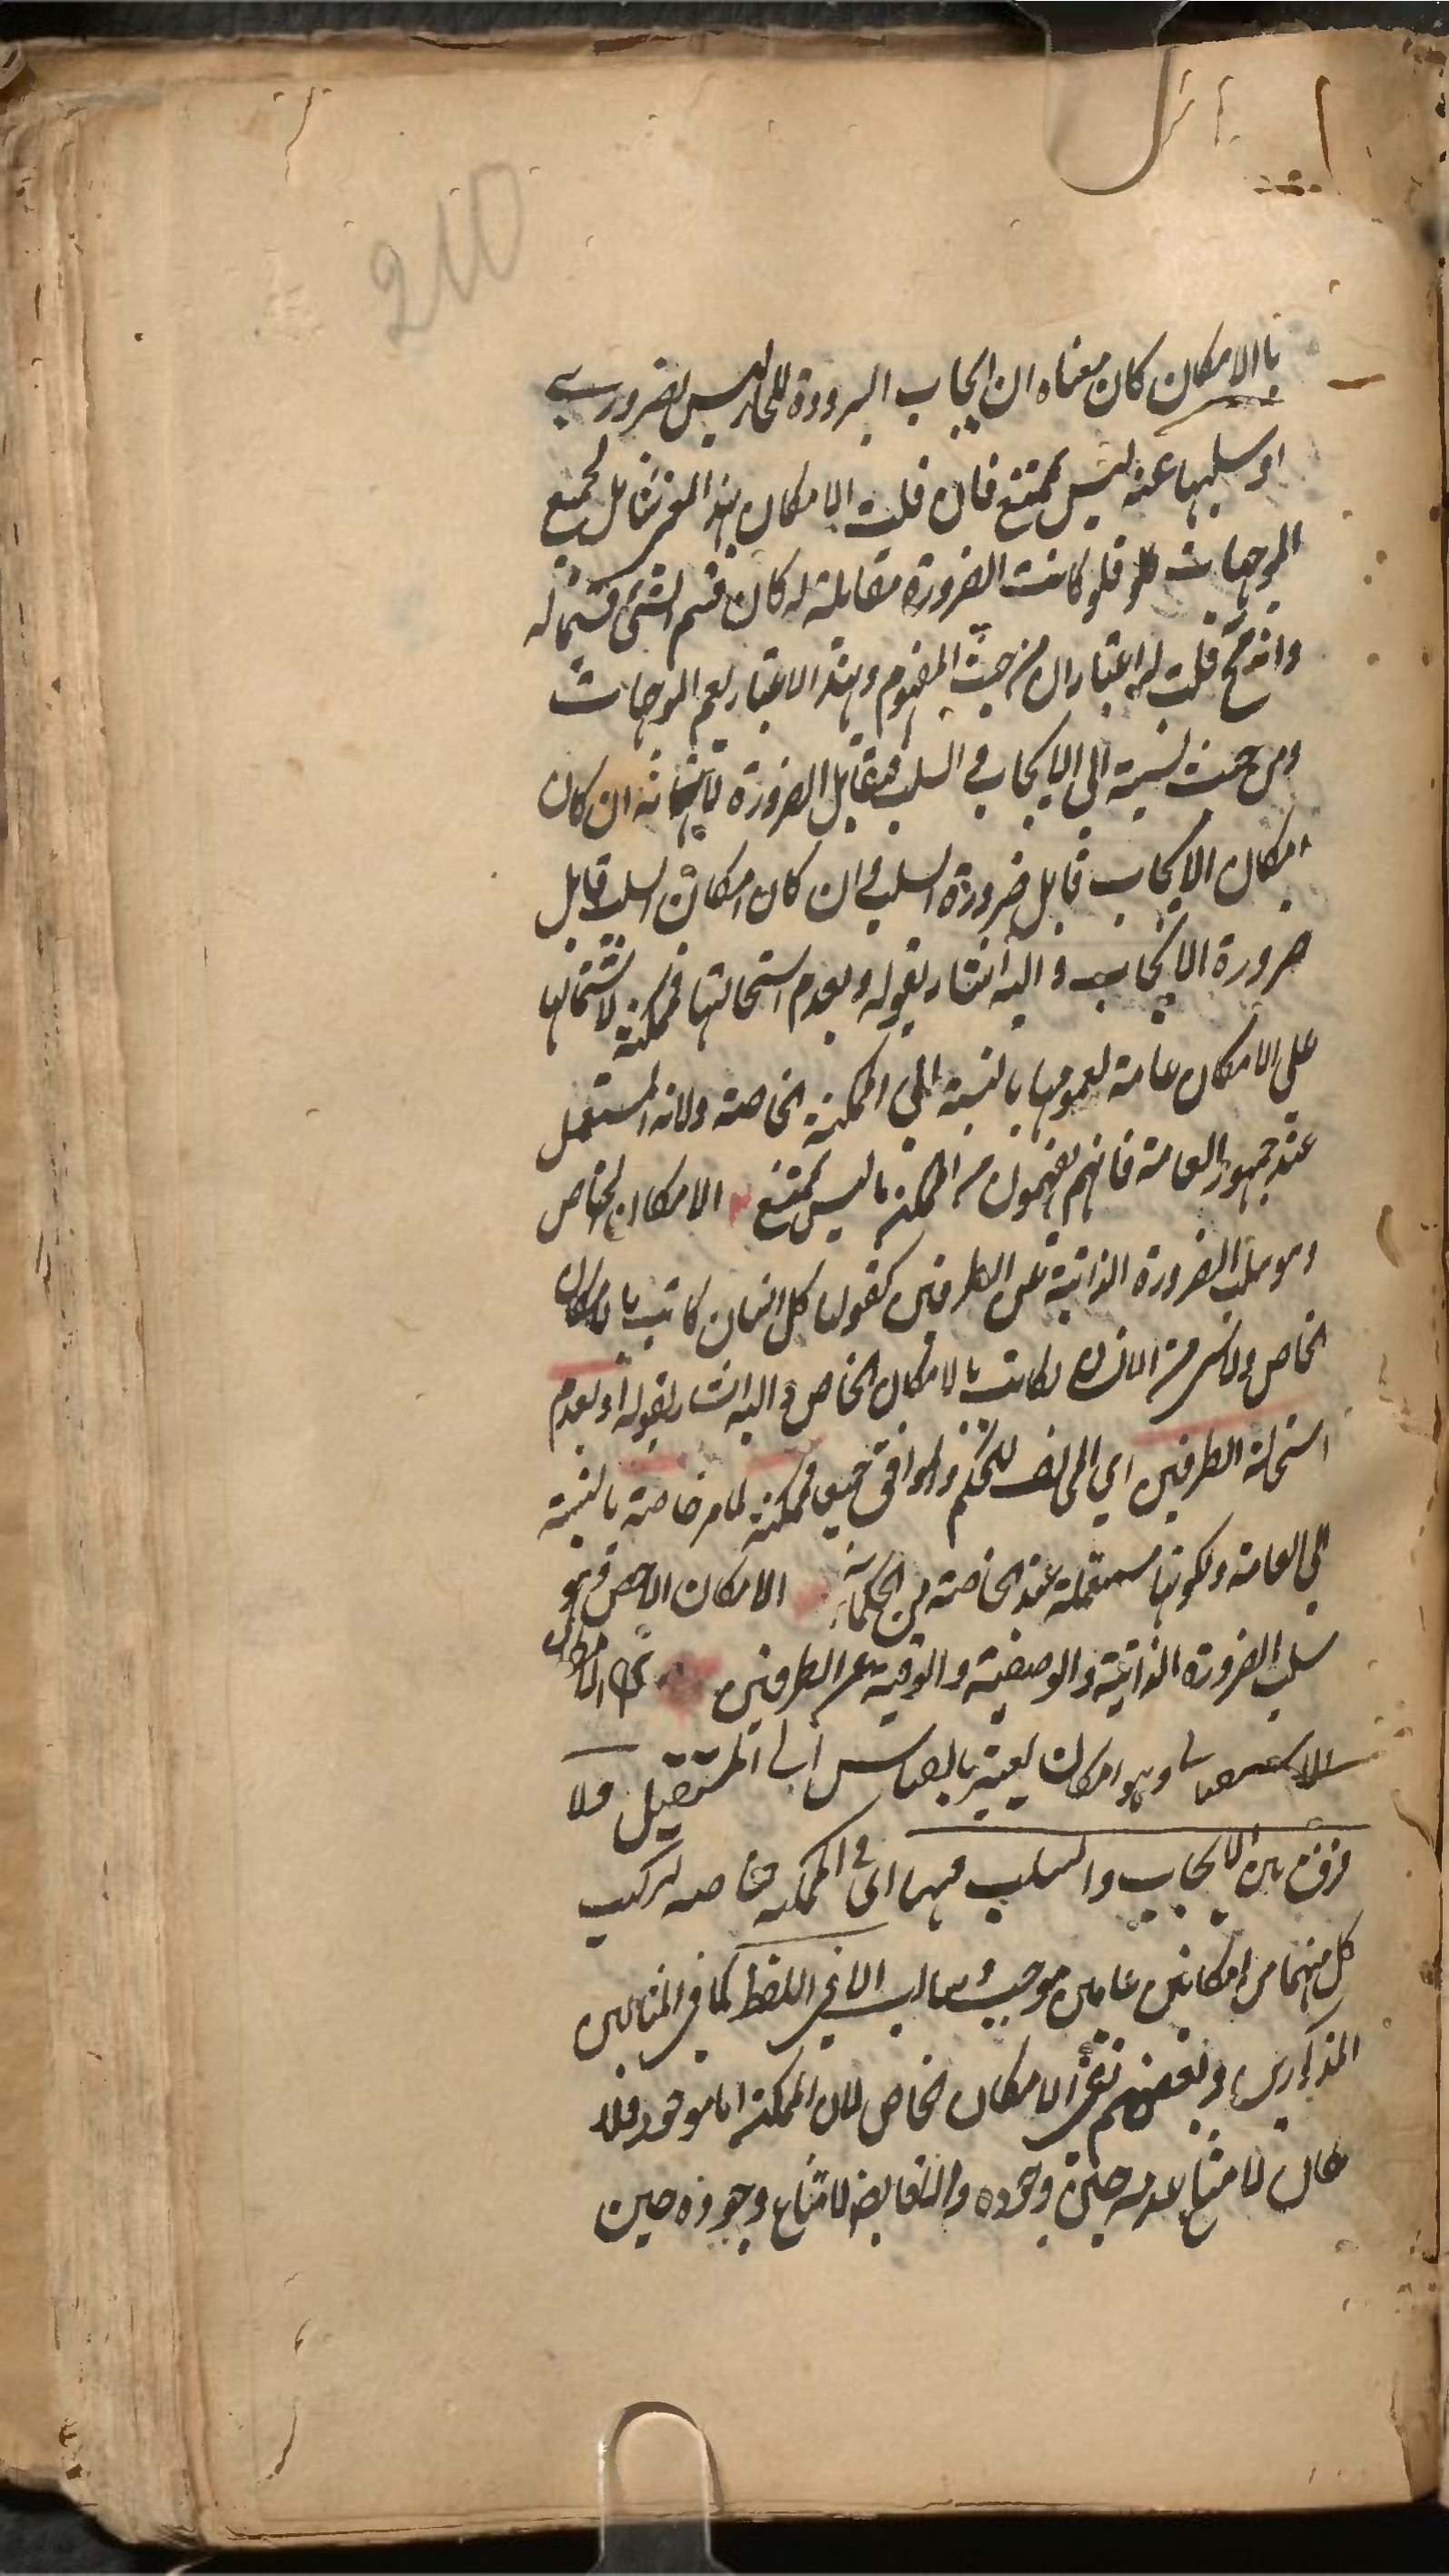 210
بالامكان كان معناه ان ايجاب البرودة للحار ليس بضروري
او سلبها عنه ليس بممتنع فان قلت الامكان بهذا المعنى شامل لجميع
الموجهات فلو كانت الضرورة مقابلة له كان قسم الشئ قسيما له
وانه قبح قلت له اعتباران من حيث المفهوم وبهذا الاعتبار يعم الموجهات
ومن حيث نسبته الى الايجاب والسلب فيقابل الضرورة لانه ان كان
امكان الايجاب قابل ضرورة السلب وان كان امكان السلب قابل
ضرورة الايجاب واليه اشار بقوله وبعدم استحالتها فممكنة لاشتمالها
على الامكان عامة لعمومها بالنسبة الى الممكنة الخاصة ولانه المستعمل
عند جمهور العامة فانهم يفهمون من الممكنة ما ليس بممتنع الامكان الخاص
وهو سلب الضرورة الذاتية عن الطرفين كقولنا كل انسان كاتب بالامكان
الخاص ولا شئ من الانسان بكاتب بالامكان الخاص واليه اشار بقوله او بعدم
استحالة الطرفين اي المخالف للحكم والموافق جميعا فممكنة لما مر خاصة بالنسبة
الى العامة ولكونها مستعملة عند الخاصة من الحكماء الامكان الاخص وهو
سلب الضرورة الذاتية والوصفية والوقتية عن الطرفين الامكان
الاستقبالي وهو امكان يعتبر بالقياس الى المستقبل ولا
فرق بين الايجاب والسلب فيهما اي في الممكنة خاصة لتركيب
كل منهما من امكانين عامين موجب وسالب الا في اللفظ كما في المثالين
المذكورين وبعضهم نفى الامكان الخاص لان الممكنة اما موجود فلا
امكان لامتناع عدمه حين وجوده لامتناع وجوده حين